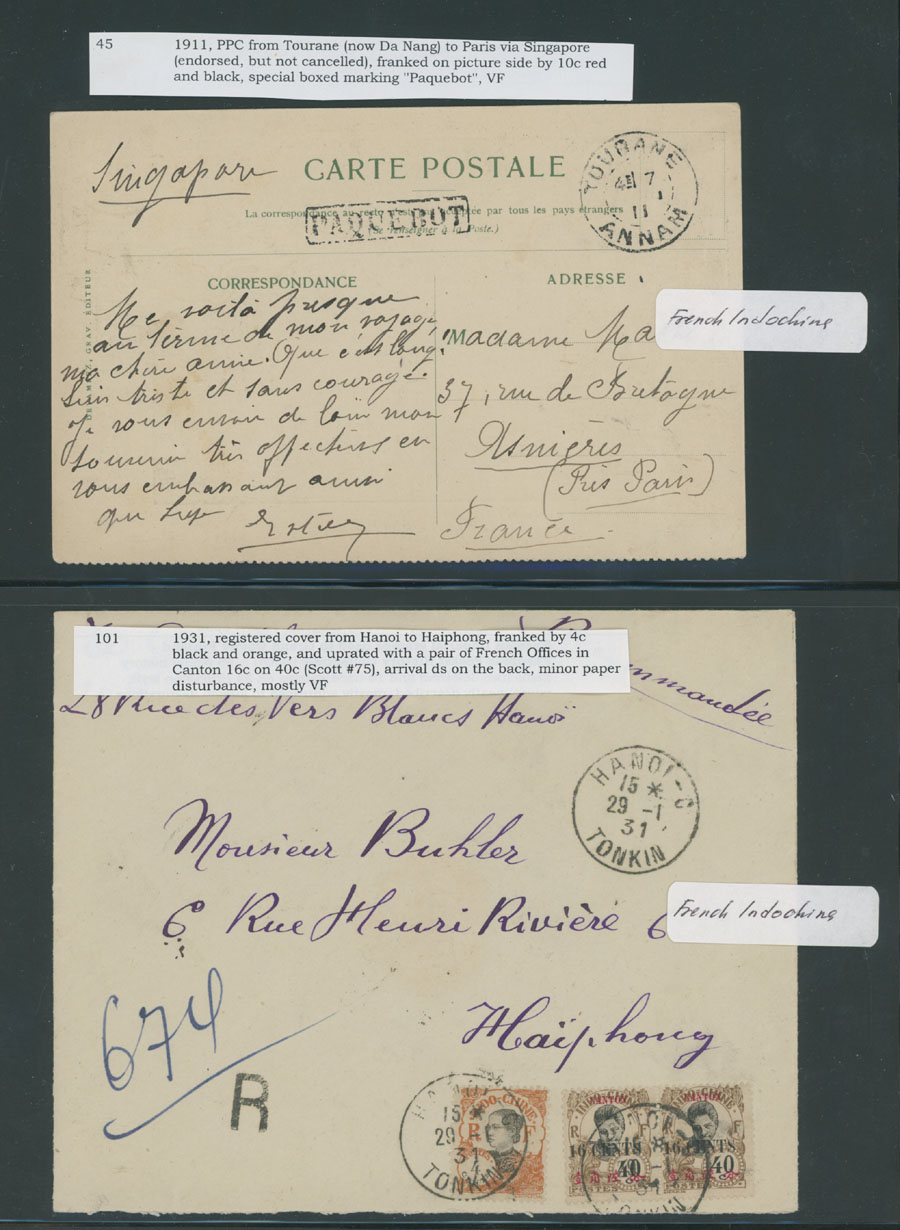 45
1911, PPC from Tourane (now Da Nang) to Paris via Singapore
(endorsed, but not cancelled), franked on picture side by 10c red
and black, special boxed marking "Paquebot", VF
Singapore
CARTE POSTALE
TOURANE
7
11
ANNAM
La correspondance au par tous les pays étrangers
PAQUEBOT
(Se renseigner à la Poste.)
CORRESPONDANCE
ADRESSE
GRAV. ÉDITEUR
Me voilà presque
au terme de mon voyage
ma chère amie. Que c'est long!
Suis triste et sans courage.
Je vous envoie de loin mon
souvenir très affectueux en
vous embrassant ainsi
que
Madame Ma
37, rue de Bretagne
Asnières
(Près Paris)
France
French Indochina
101
1931, registered cover from Hanoi to Haiphong, franked by 4c
black and orange, and uprated with a pair of French Offices in
Canton 16c on 40c (Scott #75), arrival ds on the back, minor paper
disturbance, mostly VF
ommandée
28 Rue des Vers Blancs Hanoï
HANOI-C
15 *
29 -1
31
TONKIN
Monsieur Buhler
6 Rue Henri Rivière 6
French Indochina
Haïphong
674
R
15 *
29
31
TONKIN
INDO-CHINE
R F
4
CANTON
R F
16 CENTS
40
POSTES
CANTON
F
16 CENTS
40
31
TONKIN